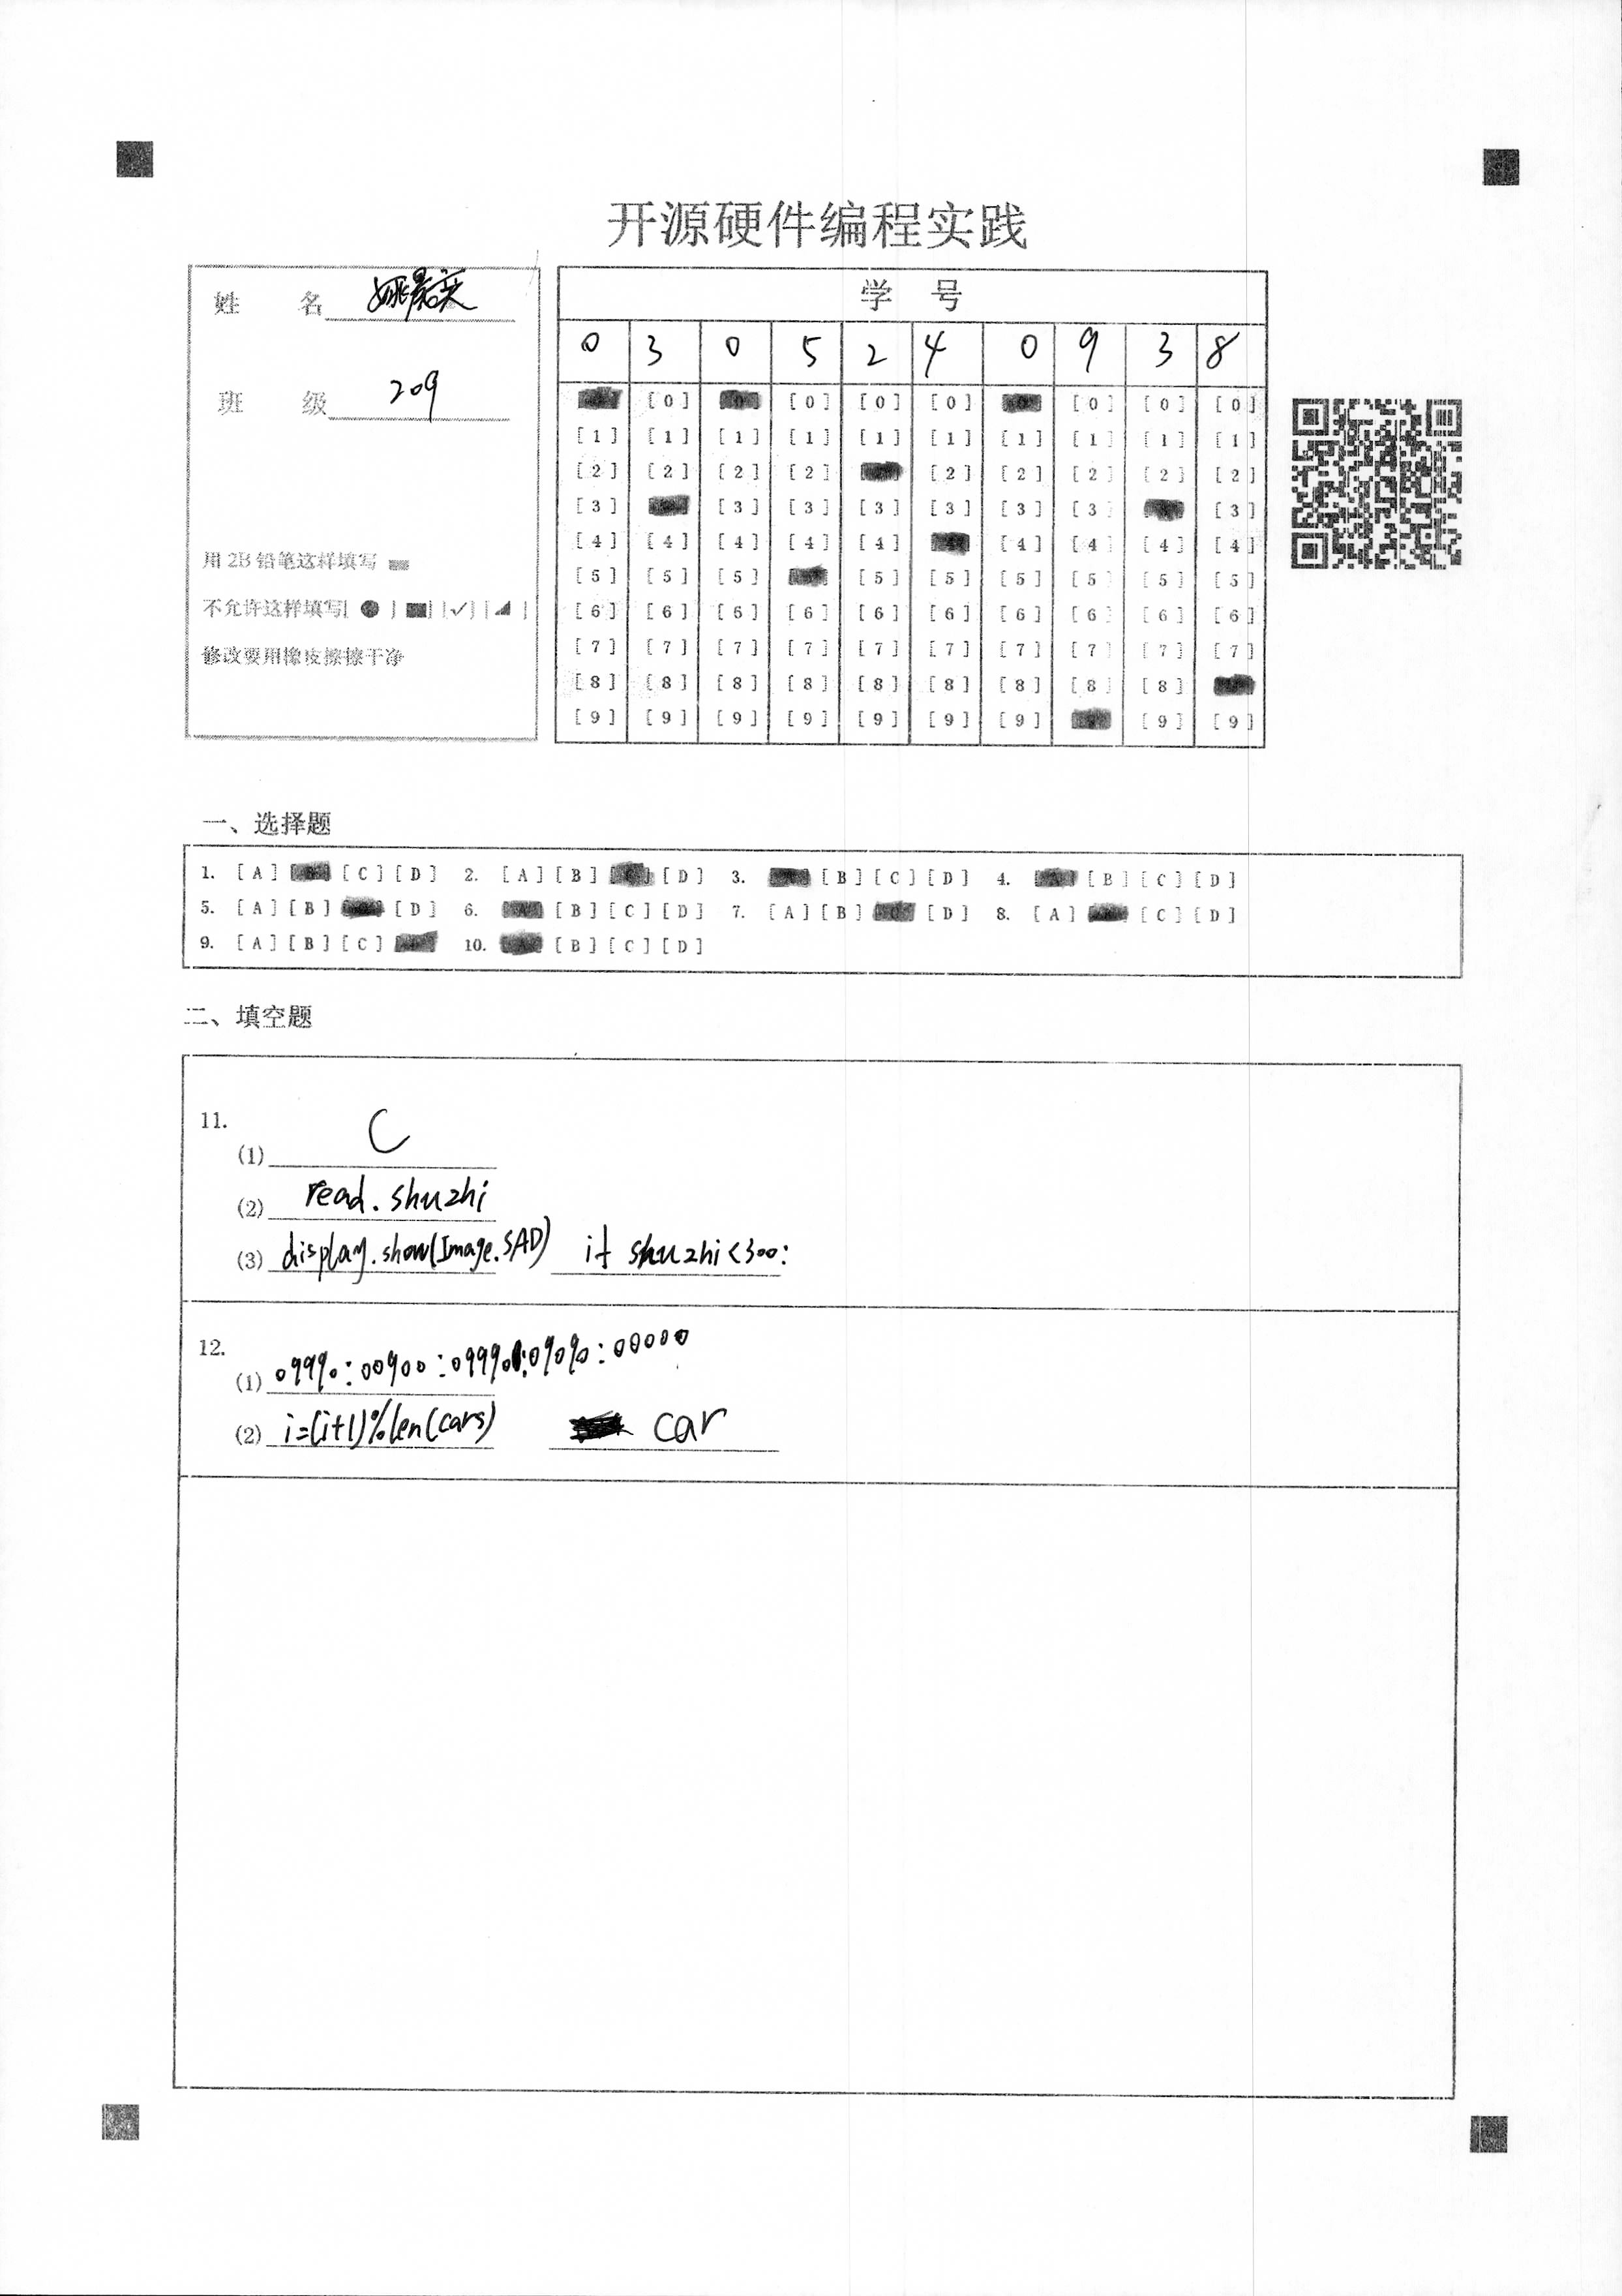 开源硬件编程实践
姓 名
班 级 209
用 2B 铅笔这样填写
不允许这样填写[ ● ] [■] [✓] [◢]
修改要用橡皮擦擦干净
学 号
0 3 0 5 2 4 0 9 3 8
[0] [0] [0] [0] [0] [0] [0]
[1] [1] [1] [1] [1] [1] [1] [1] [1] [1]
[2] [2] [2] [2] [2] [2] [2] [2] [2]
[3] [3] [3] [3] [3] [3] [3] [3]
[4] [4] [4] [4] [4] [4] [4] [4] [4]
[5] [5] [5] [5] [5] [5] [5] [5] [5]
[6] [6] [6] [6] [6] [6] [6] [6] [6] [6]
[7] [7] [7] [7] [7] [7] [7] [7] [7] [7]
[8] [8] [8] [8] [8] [8] [8] [8] [8]
[9] [9] [9] [9] [9] [9] [9] [9] [9]
一、选择题
1. [A] [B] [C] [D] 2. [A] [B] [C] [D] 3. [A] [B] [C] [D] 4. [A] [B] [C] [D]
5. [A] [B] [D] 6. [A] [B] [C] [D] 7. [A] [B] [C] [D] 8. [A] [B] [C] [D]
9. [A] [B] [C] 10. [A] [B] [C] [D]
二、填空题
11.
(1) C
(2) read.shuzhi
(3) display.show(Image.SAD) if shuzhi<300:
12.
(1) 09990:00900:09990:09090:00000
(2) i=(i+1)%len(cars) car